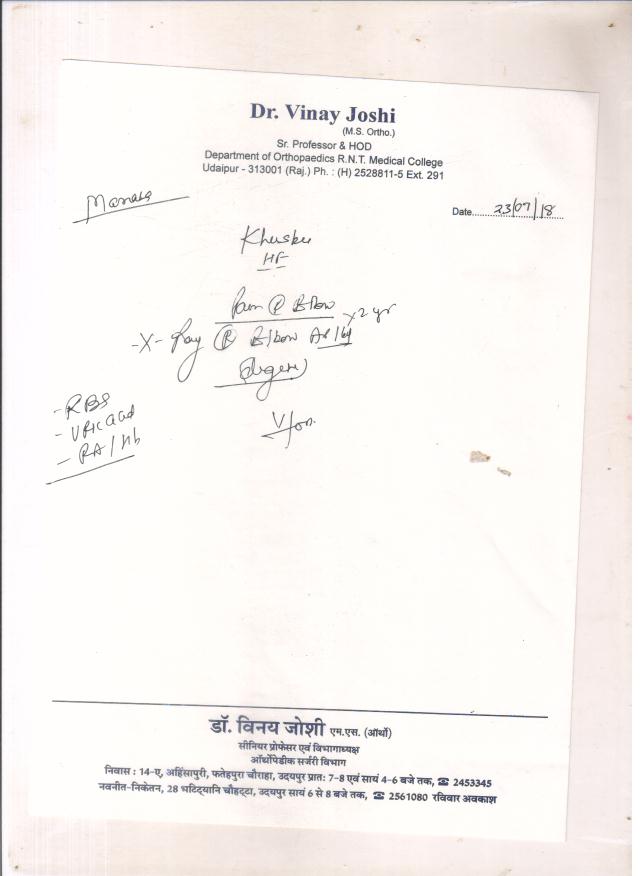 Dr. Vinay Joshi
(M.S. Ortho.)
Sr. Professor & HOD
Department of Orthopaedics R.N.T. Medical College
Udaipur - 313001 (Raj.) Ph. : (H) 2528811-5 Ext. 291
Date 23/07/18
HF
Pain R Elbow x 2 yr
-X- Ray R Elbow AP/
- RBS
- Uric acid
- RA / Hb
डॉ. विनय जोशी एम.एस. (ऑर्थो)
सीनियर प्रोफेसर एवं विभागाध्यक्ष
ऑर्थोपेडीक सर्जरी विभाग
निवास : 14-ए, अहिंसापुरी, फतेहपुरा चौराहा, उदयपुर प्रातः 7-8 एवं सायं 4-6 बजे तक, ☎ 2453345
नवनीत-निकेतन, 28 भटिट्यानि चौहट्टा, उदयपुर सायं 6 से 8 बजे तक, ☎ 2561080 रविवार अवकाश